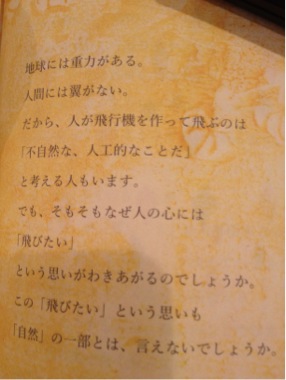 地球には重力がある。
人間には翼がない。
だから、人が飛行機を作って飛ぶのは
「不自然な、人工的なことだ」
と考える人もいます。
でも、そもそもなぜ人の心には
「飛びたい」
という思いがわきあがるのでしょうか。
この「飛びたい」という思いも
「自然」の一部とは、言えないでしょうか。